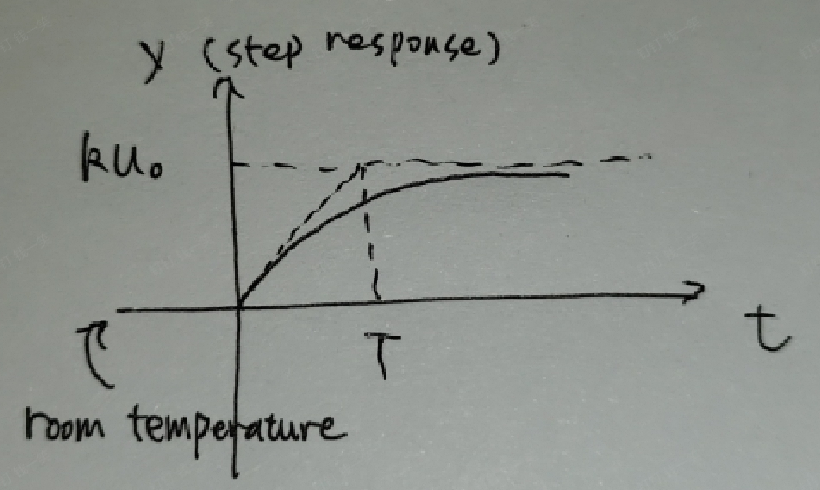 y (step response)
ku₀
t
T
room temperature